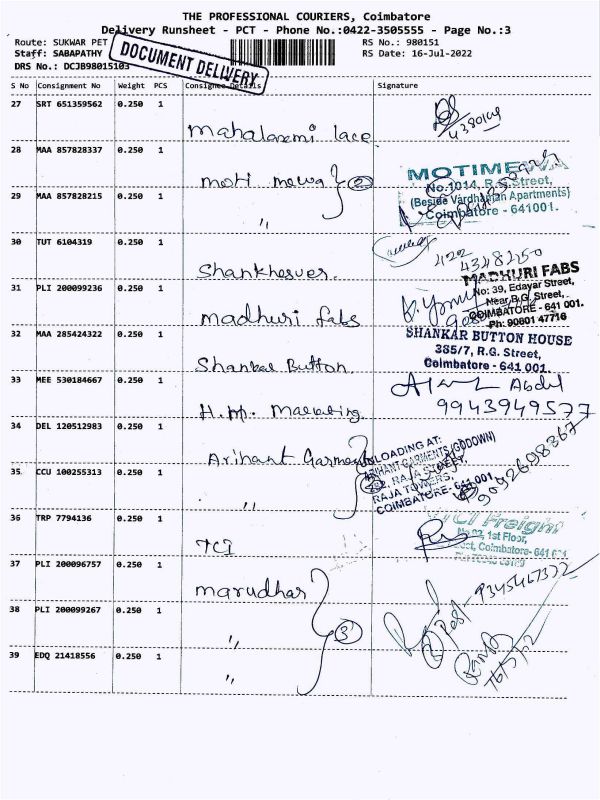 THE PROFESSIONAL COURIERS, Coimbatore
Delivery Runsheet - PCT - Phone No.:0422-3505555 - Page No.:3
Route: SUKWAR PET
RS No.: 980151
Staff: SABAPATHY
RS Date: 16-Jul-2022
DRS No.: DCJB98015103
DOCUMENT DELIVERY
S No Consignment No Weight PCS Consignee Details Signature
27 SRT 651359562 0.250 1
Mahalaxmi lace
28 MAA 857828337 0.250 1
moti mewa 2
MOTIMEWA
No.1014, R.G.Street,
(Beside Vardhaman Apartments)
Coimbatore - 641001.
29 MAA 857828215 0.250 1
"
30 TUT 6104319 0.250 1
Shankhesver.
31 PLI 200099236 0.250 1
madhuri fabs
MADHURI FABS
No: 39, Edayar Street,
Near B.G. Street,
COIMBATORE - 641 001.
Ph: 90801 47716
32 MAA 285424322 0.250 1
Shankar Button
SHANKAR BUTTON HOUSE
385/7, R.G. Street,
Coimbatore - 641 001.
33 MEE 530184667 0.250 1
H.M. Marketing
Abdul
9943949577
34 DEL 120512983 0.250 1
Arihant Garments
LOADING AT:
ARIHANT GARMENTS (GODOWN)
RAJA STREET,
RAJA TOWERS,
COIMBATORE- 641 001.
9092698367
35 CCU 100255313 0.250 1
"
36 TRP 7794136 0.250 1
TCI
TCI Freight
1st Floor,
Coimbatore- 641 001
37 PLI 200096757 0.250 1
marudhar 3
9345467322
38 PLI 200099267 0.250 1
"
39 EDQ 21418556 0.250 1
"